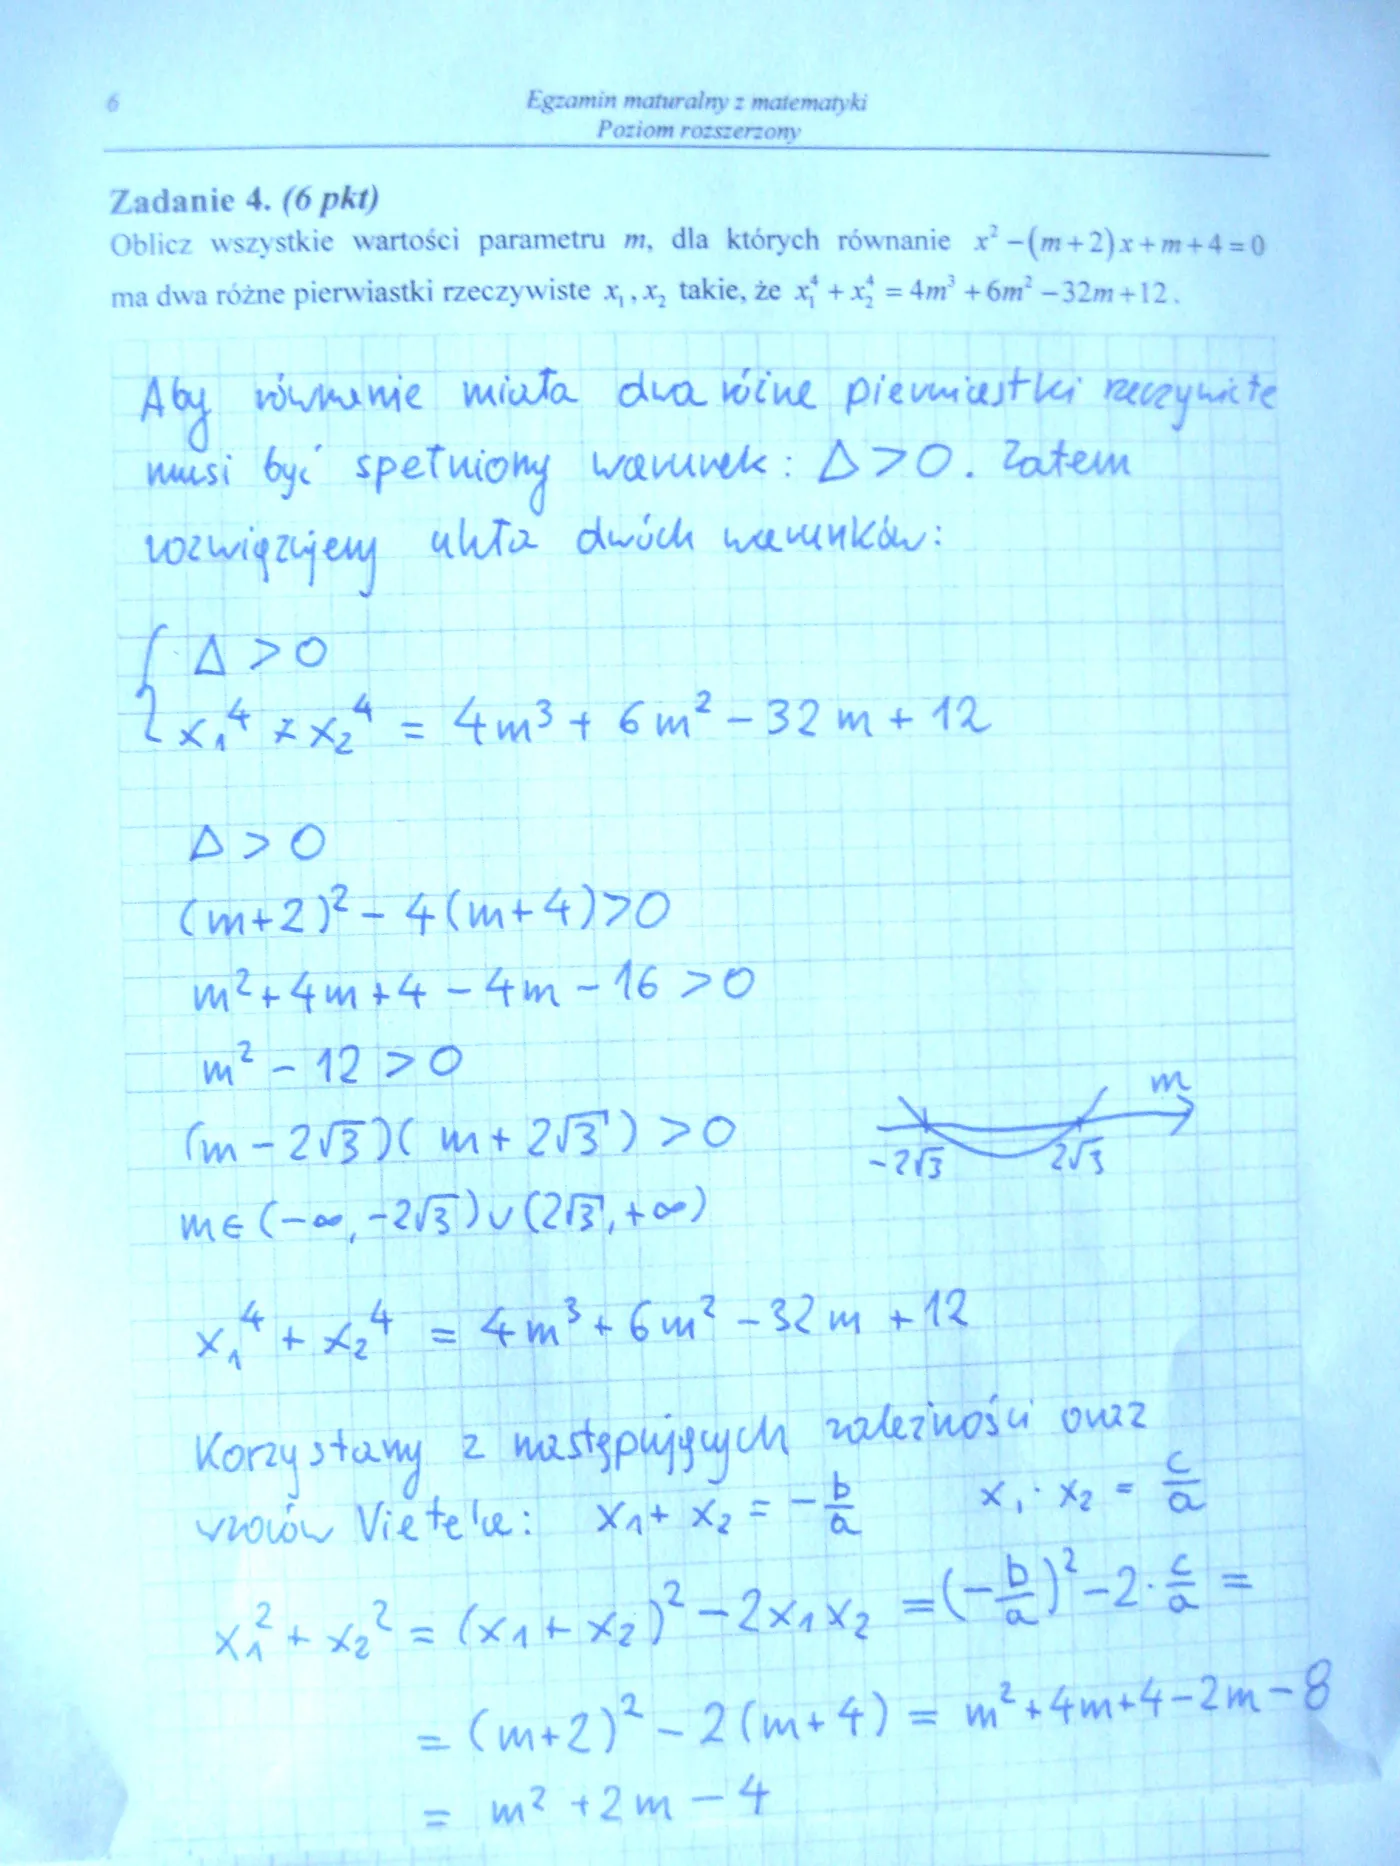 6
Egzamin maturalny z matematyki
Poziom rozszerzony
Zadanie 4. (6 pkt)
Oblicz wszystkie wartości parametru m, dla których równanie x² −(m+2)x+m+4=0
ma dwa różne pierwiastki rzeczywiste x₁, x₂ takie, że x₁⁴ + x₂⁴ = 4m³ +6m² −32m+12.
Aby równanie miała dwa różne pierwiastki rzeczywiste
musi być spełniony warunek: Δ>0. Zatem
rozwiązujemy ukła dwóch warunków:
Δ >0
x₁⁴ + x₂⁴ = 4m³ + 6m² − 32m + 12
Δ > 0
(m+2)² − 4(m+4)>0
m² + 4m + 4 − 4m − 16 >0
m² − 12 >0
(m − 2√3)( m + 2√3) >0
m
−2√3 2√3
m∈(−∞, −2√3)∪(2√3, +∞)
x₁⁴ + x₂⁴ = 4m³ + 6m² − 32m + 12
Korzystamy z następujących zależności oraz
wzorów Viete'a: x₁ + x₂ = −b/a x₁·x₂ = c/a
x₁² + x₂² = (x₁ + x₂)² − 2x₁x₂ = (−b/a)² − 2·c/a =
= (m+2)² − 2(m+4) = m² + 4m + 4 − 2m − 8
= m² + 2m − 4